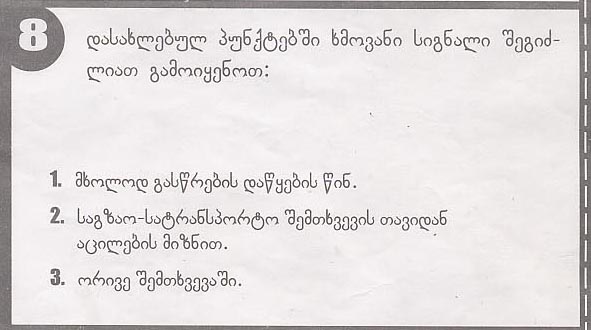 8
დასახლებულ პუნქტებში ხმოვანი სიგნალი შეგიძ-
ლიათ გამოიყენოთ:
1. მხოლოდ გასწრების დაწყების წინ.
2. საგზაო-სატრანსპორტო შემთხვევის თავიდან
აცილების მიზნით.
3. ორივე შემთხვევაში.